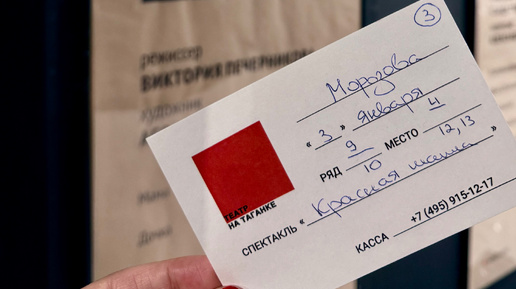 режиссер
ВИКТОРИЯ ПЕЧЕРНИКО
художник
3
Морозова
« 3 » января
РЯД 9 МЕСТО 4
10 12,13
ТЕАТР
НА ТАГАНКЕ
СПЕКТАКЛЬ « Красная »
КАССА +7 (495) 915-12-17